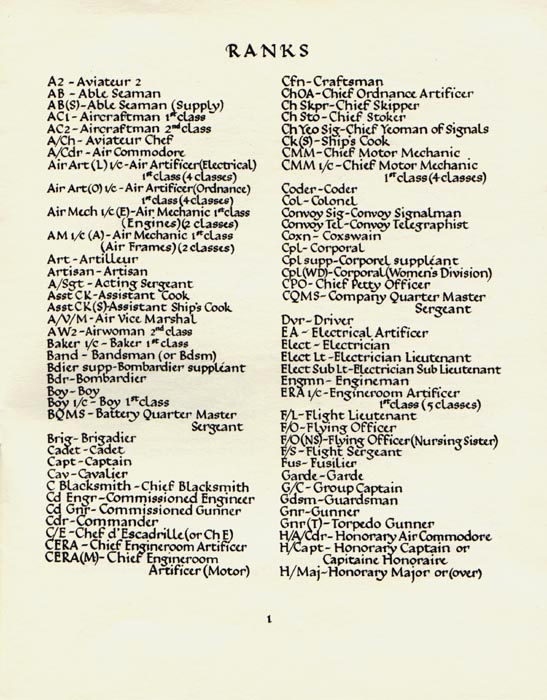 RANKS
A2 - Aviateur 2
AB - Able Seaman
AB(S)-Able Seaman (Supply)
AC1 - Aircraftman 1st class
AC2 - Aircraftman 2nd class
A/Ch - Aviateur Chef
A/Cdr - Air Commodore
Air Art (L) 1/c - Air Artificer(Electrical)
1st class (4 classes)
Air Art(O) 1/c - Air Artificer(Ordnance)
1st class (4 classes)
Air Mech 1/c (E)-Air Mechanic 1st class
(Engines)(2 classes)
AM 1/c (A) - Air Mechanic 1st class
(Air Frames)(2 classes)
Art - Artilleur
Artisan - Artisan
A/Sgt - Acting Sergeant
Asst CK - Assistant Cook
Asst CK(S)-Assistant Ship's Cook
A/V/M - Air Vice Marshal
AW2 - Airwoman 2nd class
Baker 1/c - Baker 1st class
Band - Bandsman (or Bdsm)
Bdier supp-Bombardier suppléant
Bdr-Bombardier
Boy - Boy
Boy 1/c - Boy 1st class
BQMS - Battery Quarter Master
Sergeant
Brig - Brigadier
Cadet - Cadet
Capt - Captain
Cav - Cavalier
C Blacksmith - Chief Blacksmith
Cd Engr - Commissioned Engineer
Cd Gnr - Commissioned Gunner
Cdr - Commander
C/E - Chef d'Escadrille (or Ch E)
CERA - Chief Engineroom Artificer
CERA(M)- Chief Engineroom
Artificer (Motor)
Cfn - Craftsman
ChOA - Chief Ordnance Artificer
Ch Skpr - Chief Skipper
Ch Sto - Chief Stoker
Ch Yeo Sig - Chief Yeoman of Signals
Ck(S) - Ship's Cook
CMM - Chief Motor Mechanic
CMM 1/c - Chief Motor Mechanic
1st class (4 classes)
Coder - Coder
Col - Colonel
Convoy Sig - Convoy Signalman
Convoy Tel - Convoy Telegraphist
Coxn - Coxswain
Cpl - Corporal
Cpl supp - Corporel suppléant
Cpl(WD)-Corporal(Women's Division)
CPO - Chief Petty Officer
CQMS - Company Quarter Master
Sergeant
Dvr - Driver
EA - Electrical Artificer
Elect - Electrician
Elect Lt - Electrician Lieutenant
Elect Sub Lt - Electrician Sub Lieutenant
Engmn - Engineman
ERA 1/c - Engineroom Artificer
1st class (5 classes)
F/L - Flight Lieutenant
F/O - Flying Officer
F/O(NS)-Flying Officer(Nursing Sister)
F/S - Flight Sergeant
Fus - Fusilier
Garde - Garde
G/C - Group Captain
Gdsm - Guardsman
Gnr - Gunner
Gnr(T) - Torpedo Gunner
H/A/Cdr - Honorary Air Commodore
H/Capt - Honorary Captain or
Capitaine Honoraire
H/Maj - Honorary Major or(over)
1